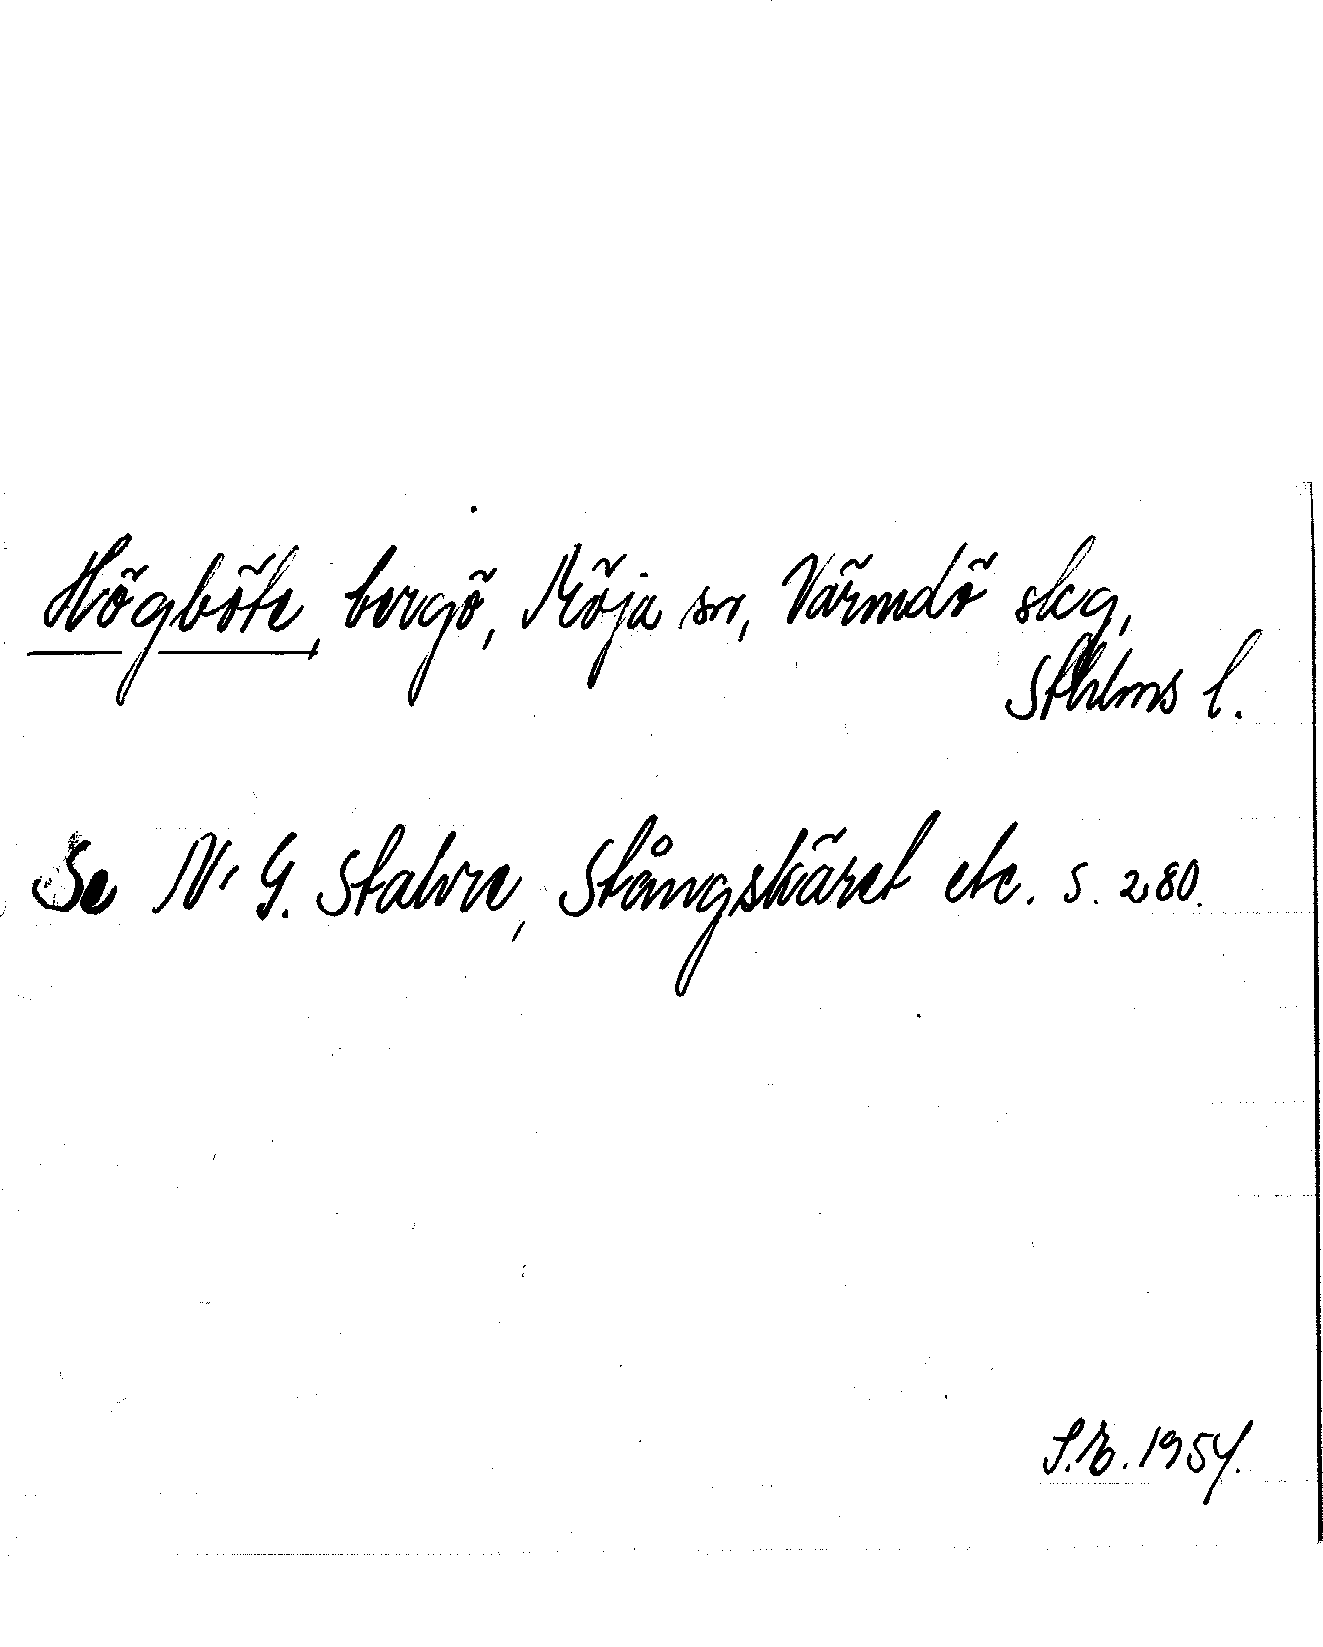 Högböte, bergö, Möja sn, Värmdö skg,
Sthlms l.
Se N. G. Stahre, Stångskäret etc. s. 280.
S.E. 1954.